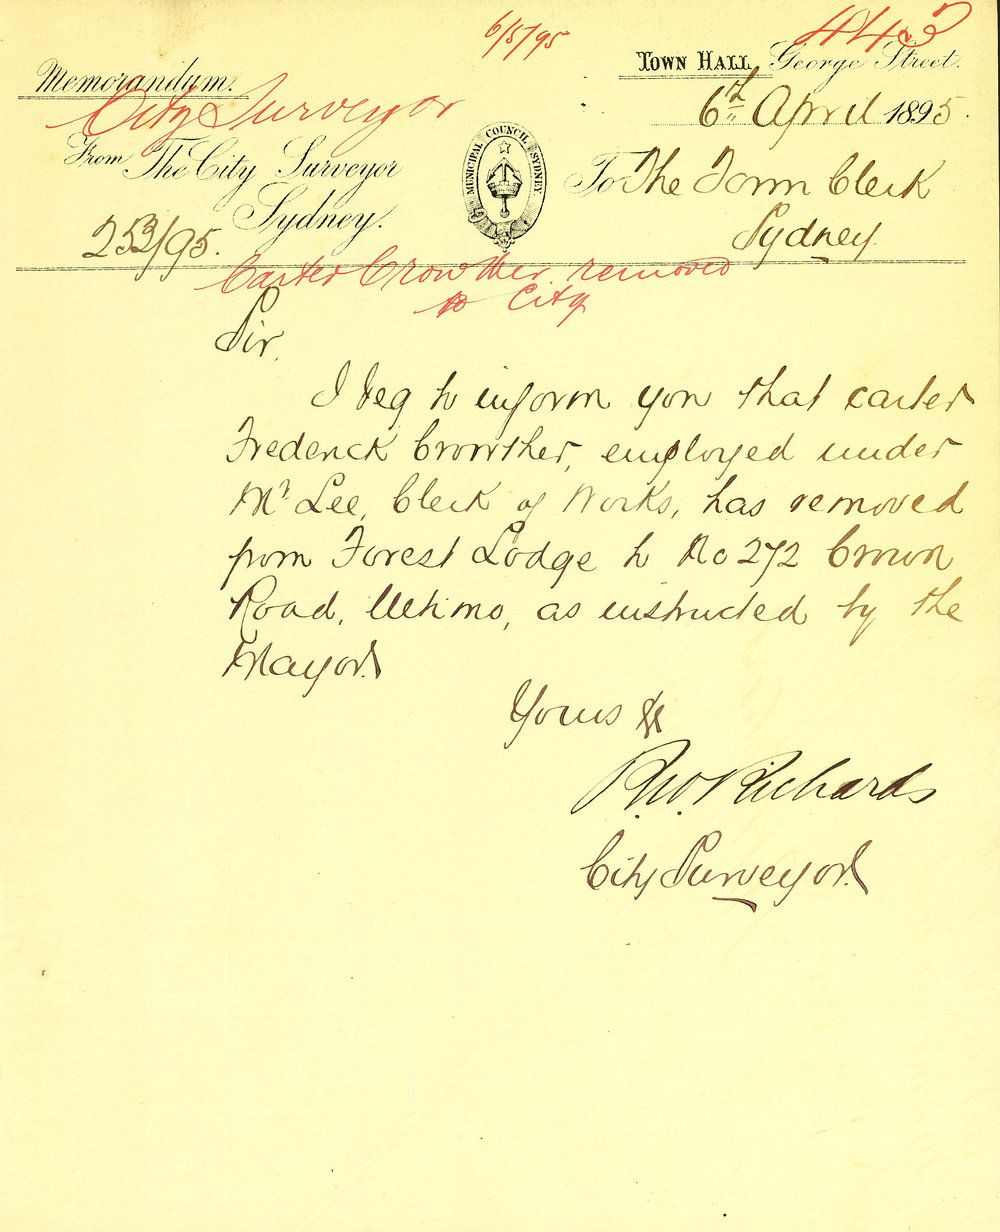 6/5/95
443
Memorandum.
TOWN HALL, George Street.
City Surveyor
6th April 1895.
From The City Surveyor
Sydney.
MUNICIPAL COUNCIL SYDNEY.
To The Town Clerk
Sydney
253/95.
Carter Crowther removed
to City
Sir,
I beg to inform you that carter
Frederick Crowther, employed under
Mr Lee, Clerk of Works, has removed
from Forest Lodge to No 272 Crown
Road, Ultimo, as instructed by the
Mayor.
Yours &c
R.W. Richards
City Surveyor.